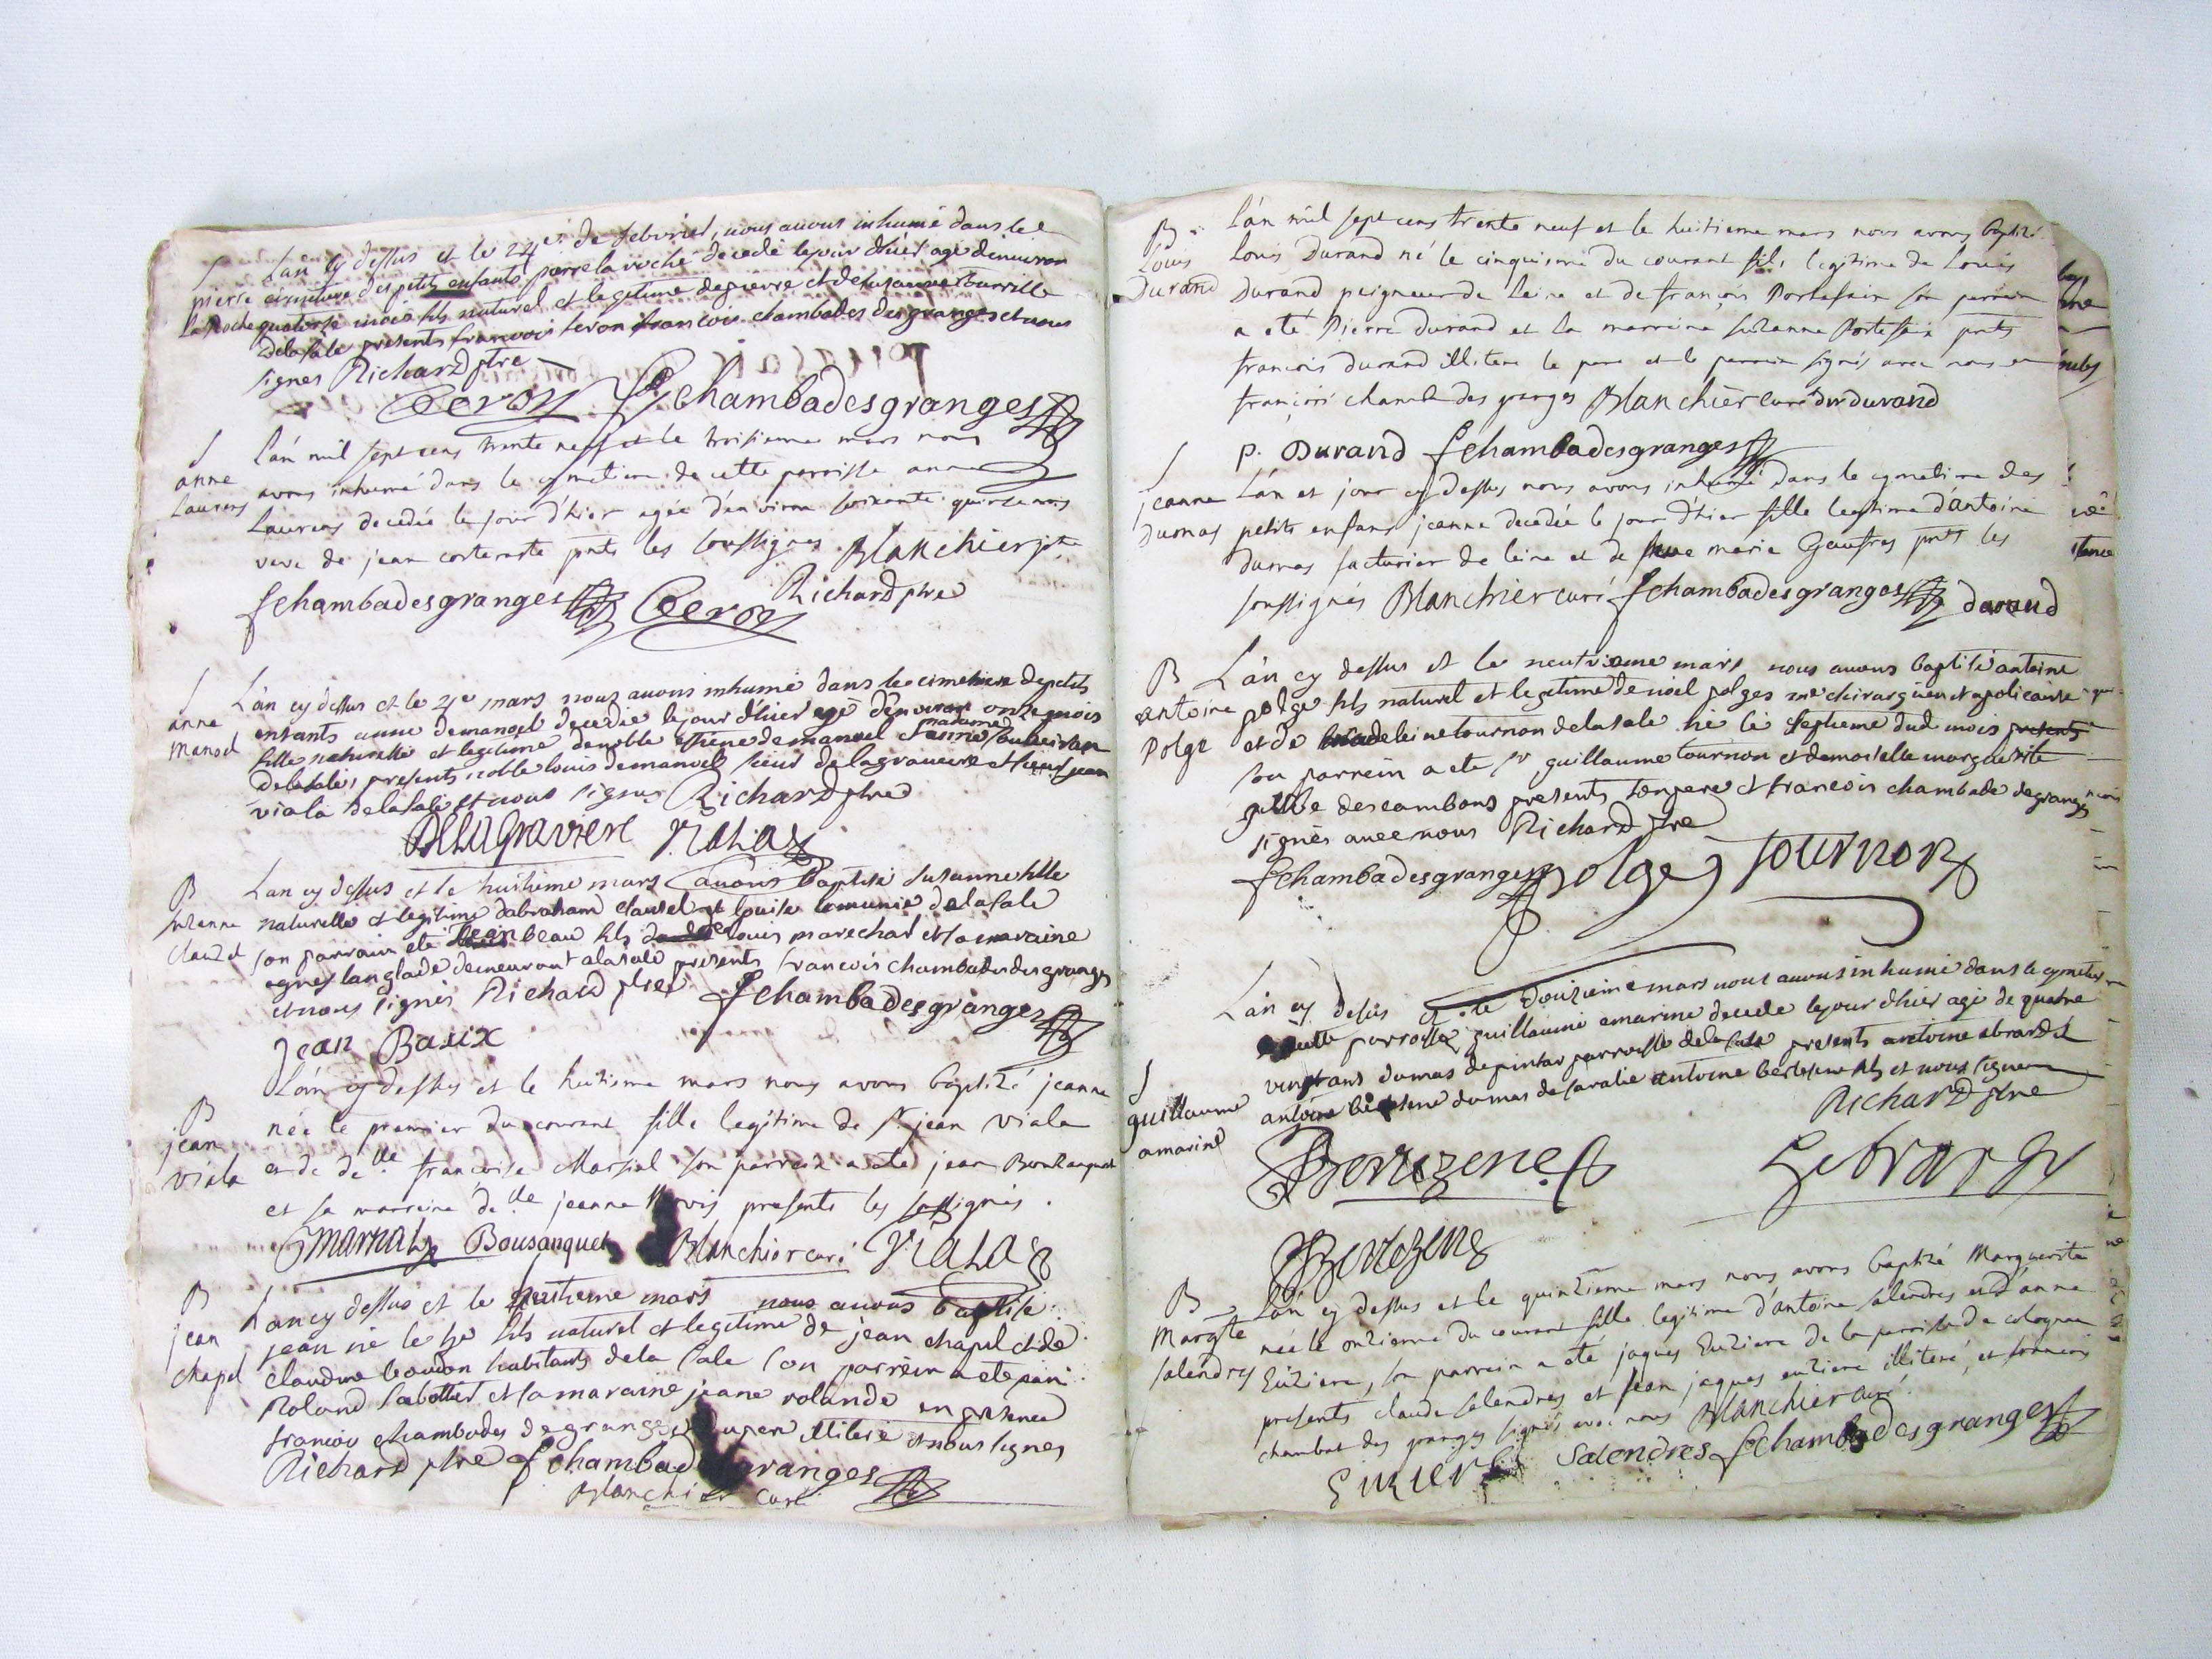 L'an cy dessus et le 24e de febvrier, nous avons inhumé dans le
S
pierre
cimitiere des petits enfants pierre la roche decedé le jour d'hier agé d'environ
la Roche
quatorse mois fils naturel et legitime de pierre et de susanne tourrille
de la sale presents francois ceron francois chambades des granges et nous
signes Richard ptre
Ceron fchambadesgranges
S
anne
Laurens
L'an mil sept cens trente neuf et le troisieme mars nous
avons inhumé dans le cymetiere de cette parroisse anne
Laurens decedée le jour d'hier agée d'environ soixante quinze ans
veve de jean pnts les soussignes Blanchier
Richard ptre
fchambadesgranges Ceron
S
anne
manoel
L'an cy dessus et le mars nous avons inhumé dans le cimetiere de petits
enfants anne demanoel decedée le jour d'hier agé d'environ onze mois
fille naturelle et legitime de noble demanoel et madame anne
de la sale, presents noble louis demanoel sieur de lagraviere et sieur jean
viala de la sale et nous signes Richard ptre
DELAGraviere Viala
B
suzanne
clauzel
L'an cy dessus et le huitieme mars avons baptisé susanne fille
naturelle et legitime d'abraham clausel et louise de la sale
son parrain ete jean beau fils de louis marechal et la maraine
agnes langlade demeurant a la sale presents francois chambades des granges
et nous signés Richard ptre fchambadesgranges
Jean Baux
B
jean
viala
L'an cy dessus et le huitieme mars nous avons baptizé jeanne
née le premier du courant fille legitime de sr jean viala
et de delle francoise Marsial son parrein a eté jean Bousanquet
et sa marreine delle jeanne presents les soussignés.
Bousanquet Blanchier curé Viala
B
jean
chapel
L'an cy dessus et le huitieme mars nous avons baptisé
jean né le fils naturel et legitime de jean chapel et de
claudine boudon habitants de la sale son parrein a ete
Roland sabottier et sa maraine jeane rolande en presence
francois chambades degranges illiteré et nous signes
Richard ptre fchambadesgranges
Blanchier curé
B
Louis
Durand
L'an mil sept cens trente neuf et le huitieme mars nous avons baptizé
Louis Durand né le cinquieme du courant fils legitime de Louis
Durand peigneur de leine et de françois Portefaix son parrein
a eté Pierre Durand et la marreine suzanne Portefaix pnts
françois durand illiteré le pere et le parrein signés avec nous et
françois chamb des granges Blanchier curé durand
P. Durand fchambadesgranges
S
jeanne
dumas
L'an et jour cy dessus nous avons inhumé dans le cymetiere des
petits enfans jeanne decedée le jour d'hier fille legitime d'antoine
dumas facturier de leine et de feue marie Gaufres pnts les
soussignés Blanchier curé fchambadesgranges durand
B
antoine
Polge
L'an cy dessus et le neuvieme mars nous avons baptisé antoine
polge fils naturel et legitime de noel polges me chirurgien et apoticaire
et de madeleine tournon de la sale né le septieme dud mois presents
son parrein a ete sr guillaume tournon et demoiselle marguerite
descambous presents son pere et francois chambade degranges
signés avec nous Richard ptre
fchambadesgranges polge tournon
S
guillaume
amarine
L'an cy dessus et le douzieme mars nous avons inhumé dans le cymetiere
de cette parroisse guillaume amarine decede le jour d'hier agé de quatre
vingt ans du mas de pintar parroisse de la sale presents antoine ebrard et
antoine bertesene du mas de antoine bertesene fils et nous signes
Richard ptre
Bertezene Lebrard
Bertezene
B
Margte
salendres
L'an cy dessus et le quinzieme mars nous avons baptizé Marguerite
née le onzieme du courant fille legitime d'antoine salendres et d'anne
Euziere, son parrein a eté jaques Euziere de la parroisse de colognac
presents claude salendres et jean jaques euziere illiteré, et francois
chambat des granges signés avec nous Blanchier curé.
Euziere Salendres fchambadesgranges